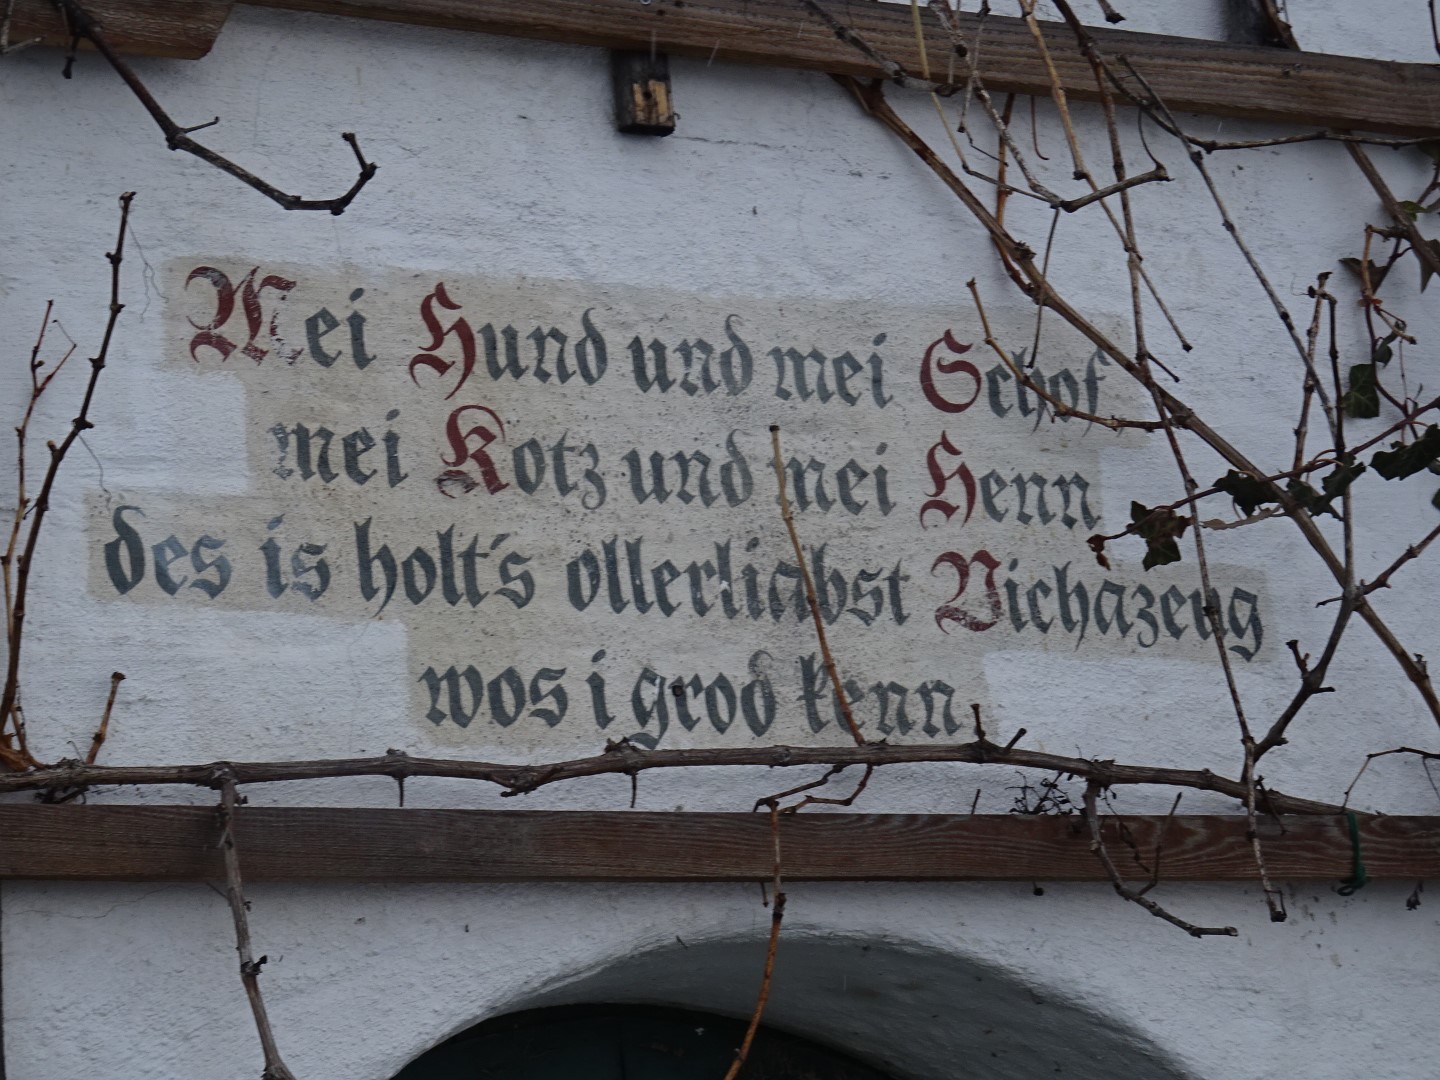 Mei Hund und mei Schof
mei Kotz und mei Henn
des is holt's ollerliabst Vichazeug
wos i grod kenn